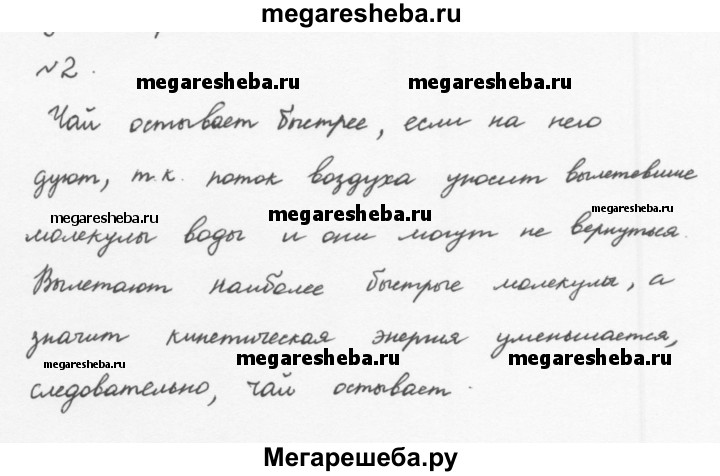 megaresheba.ru
№2.
megaresheba.ru megaresheba.ru
Чай остывает быстрее, если на него
дуют, т.к. поток воздуха уносит вылетевшие
megaresheba.ru megaresheba.ru megaresheba.ru
молекулы воды и они могут не вернуться.
Вылетают наиболее быстрые молекулы, а
значит кинетическая энергия уменьшается,
megaresheba.ru megaresheba.ru megaresheba.ru
следовательно, чай остывает.
Мегарешеба.ру